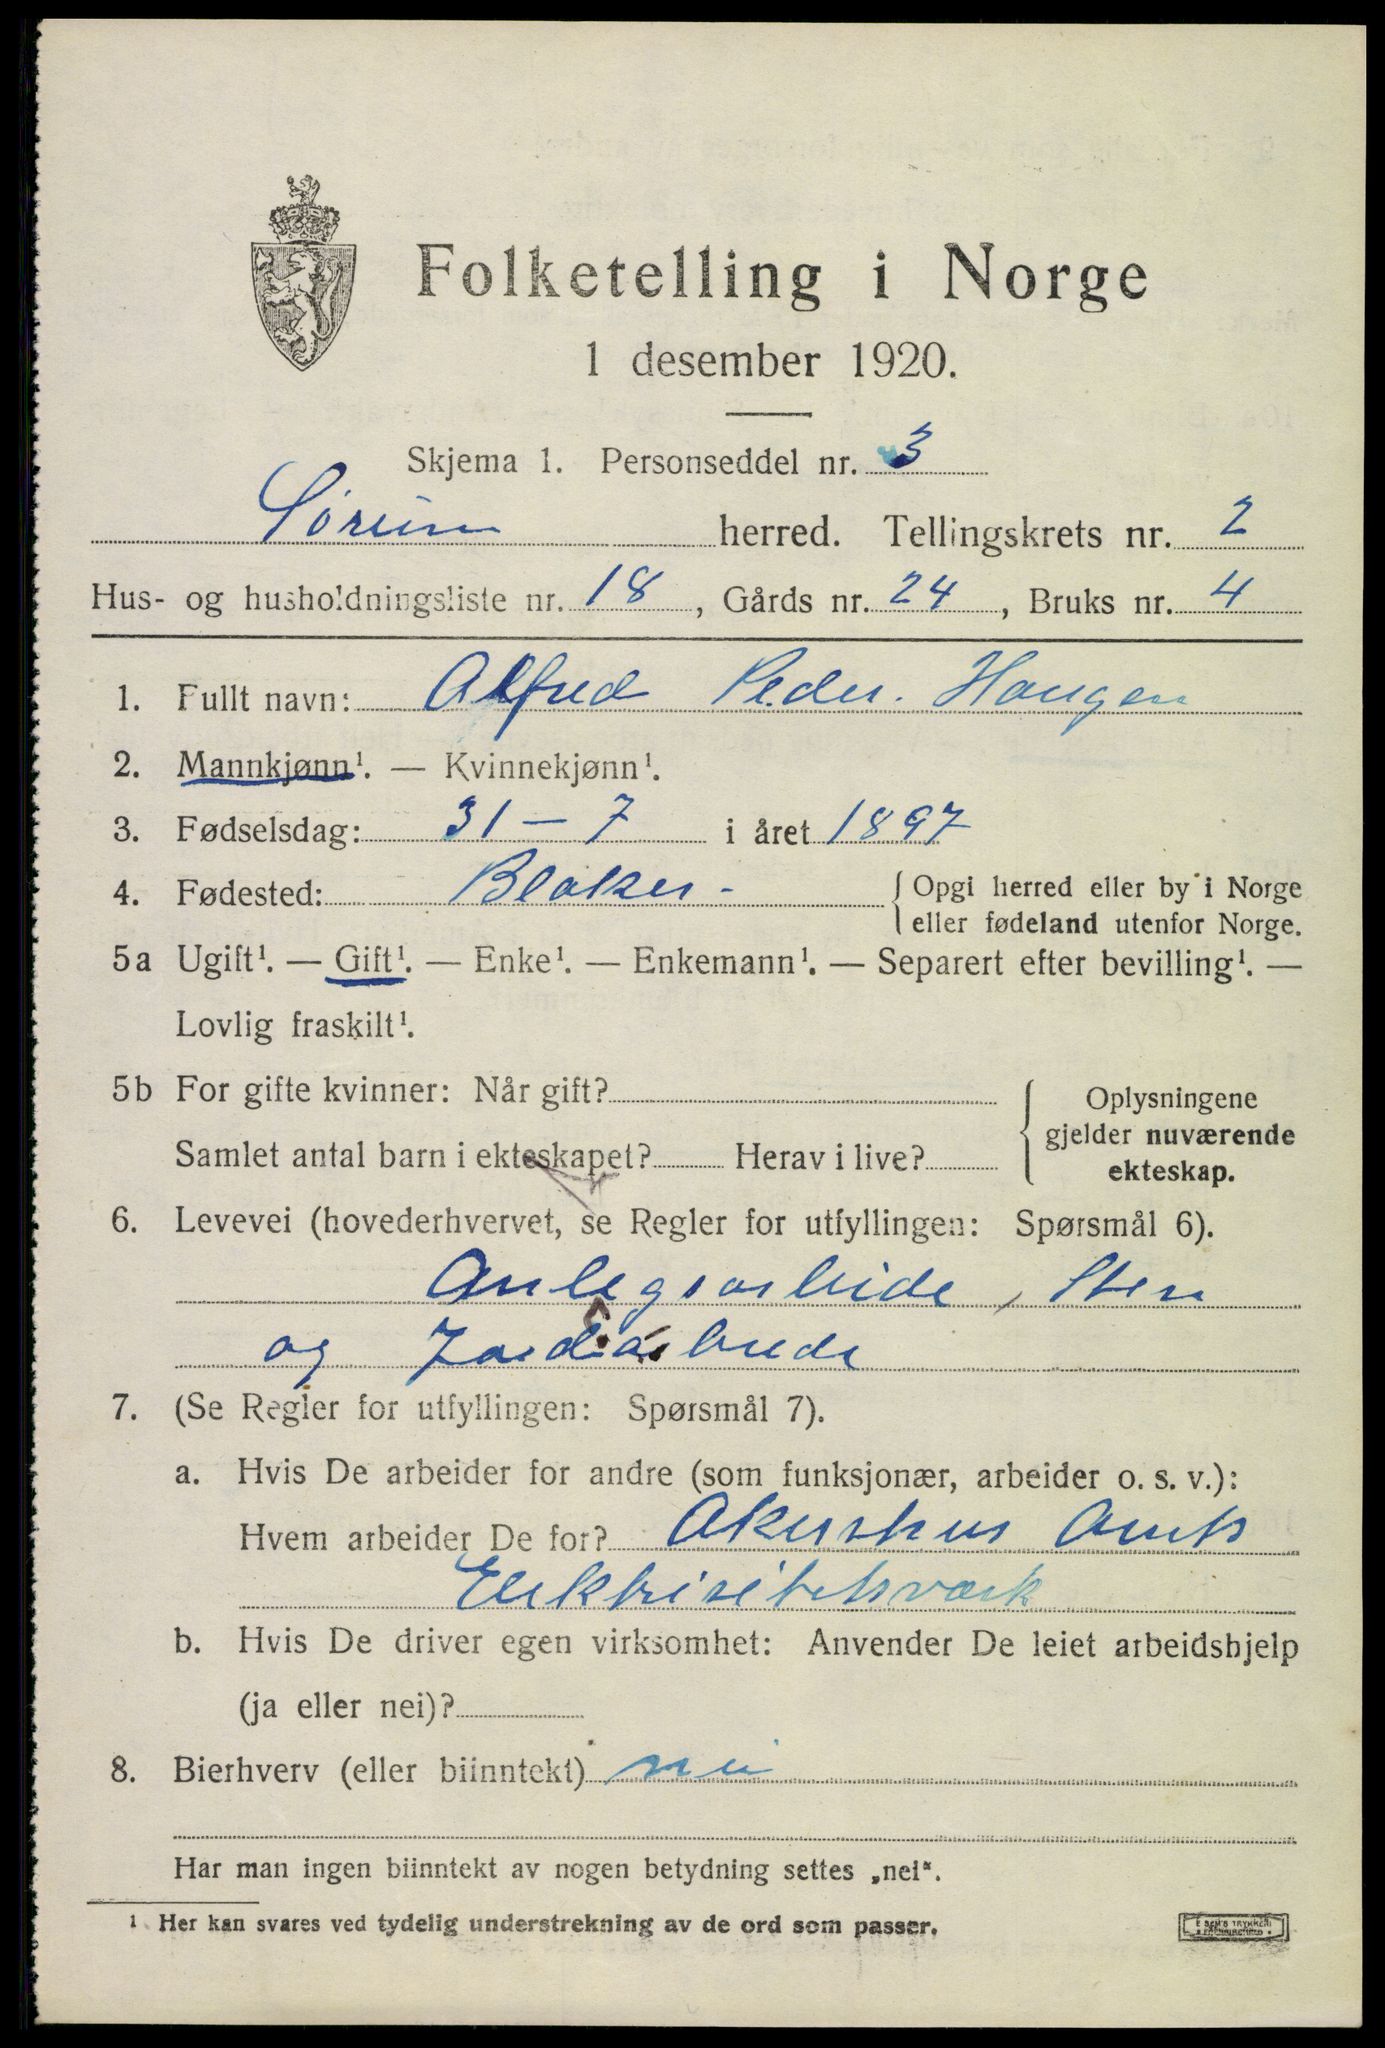 Folketelling i Norge
1 desember 1920.
Skjema 1. Personseddel nr. 3
Sørum herred. Tellingskrets nr. 2
Hus- og husholdningsliste nr. 18, Gårds nr. 24, Bruks nr. 4
1. Fullt navn: Alfred Peder. Haugen
2. Mannkjønn¹. — Kvinnekjønn¹.
3. Fødselsdag: 31 – 7 i året 1897
4. Fødested: Blaker - { Opgi herred eller by i Norge
eller fødeland utenfor Norge.
5a Ugift¹. — Gift¹. — Enke¹. — Enkemann¹. — Separert efter bevilling¹. —
Lovlig fraskilt¹.
5b For gifte kvinner: Når gift? { Oplysningene
gjelder nuværende
Samlet antal barn i ekteskapet? Herav i live?
ekteskap.
6. Levevei (hovederhvervet, se Regler for utfyllingen: Spørsmål 6).
Anlegsarbeide, Sten
og Jordarbeide
7. (Se Regler for utfyllingen: Spørsmål 7).
a. Hvis De arbeider for andre (som funksjonær, arbeider o. s. v.):
Hvem arbeider De for? Akershus Amts
Elektrisitetsværk
b. Hvis De driver egen virksomhet: Anvender De leiet arbeidshjelp
(ja eller nei)?
8. Bierhverv (eller biinntekt) nei
Har man ingen biinntekt av nogen betydning settes „nei“.
¹ Her kan svares ved tydelig understrekning av de ord som passer.